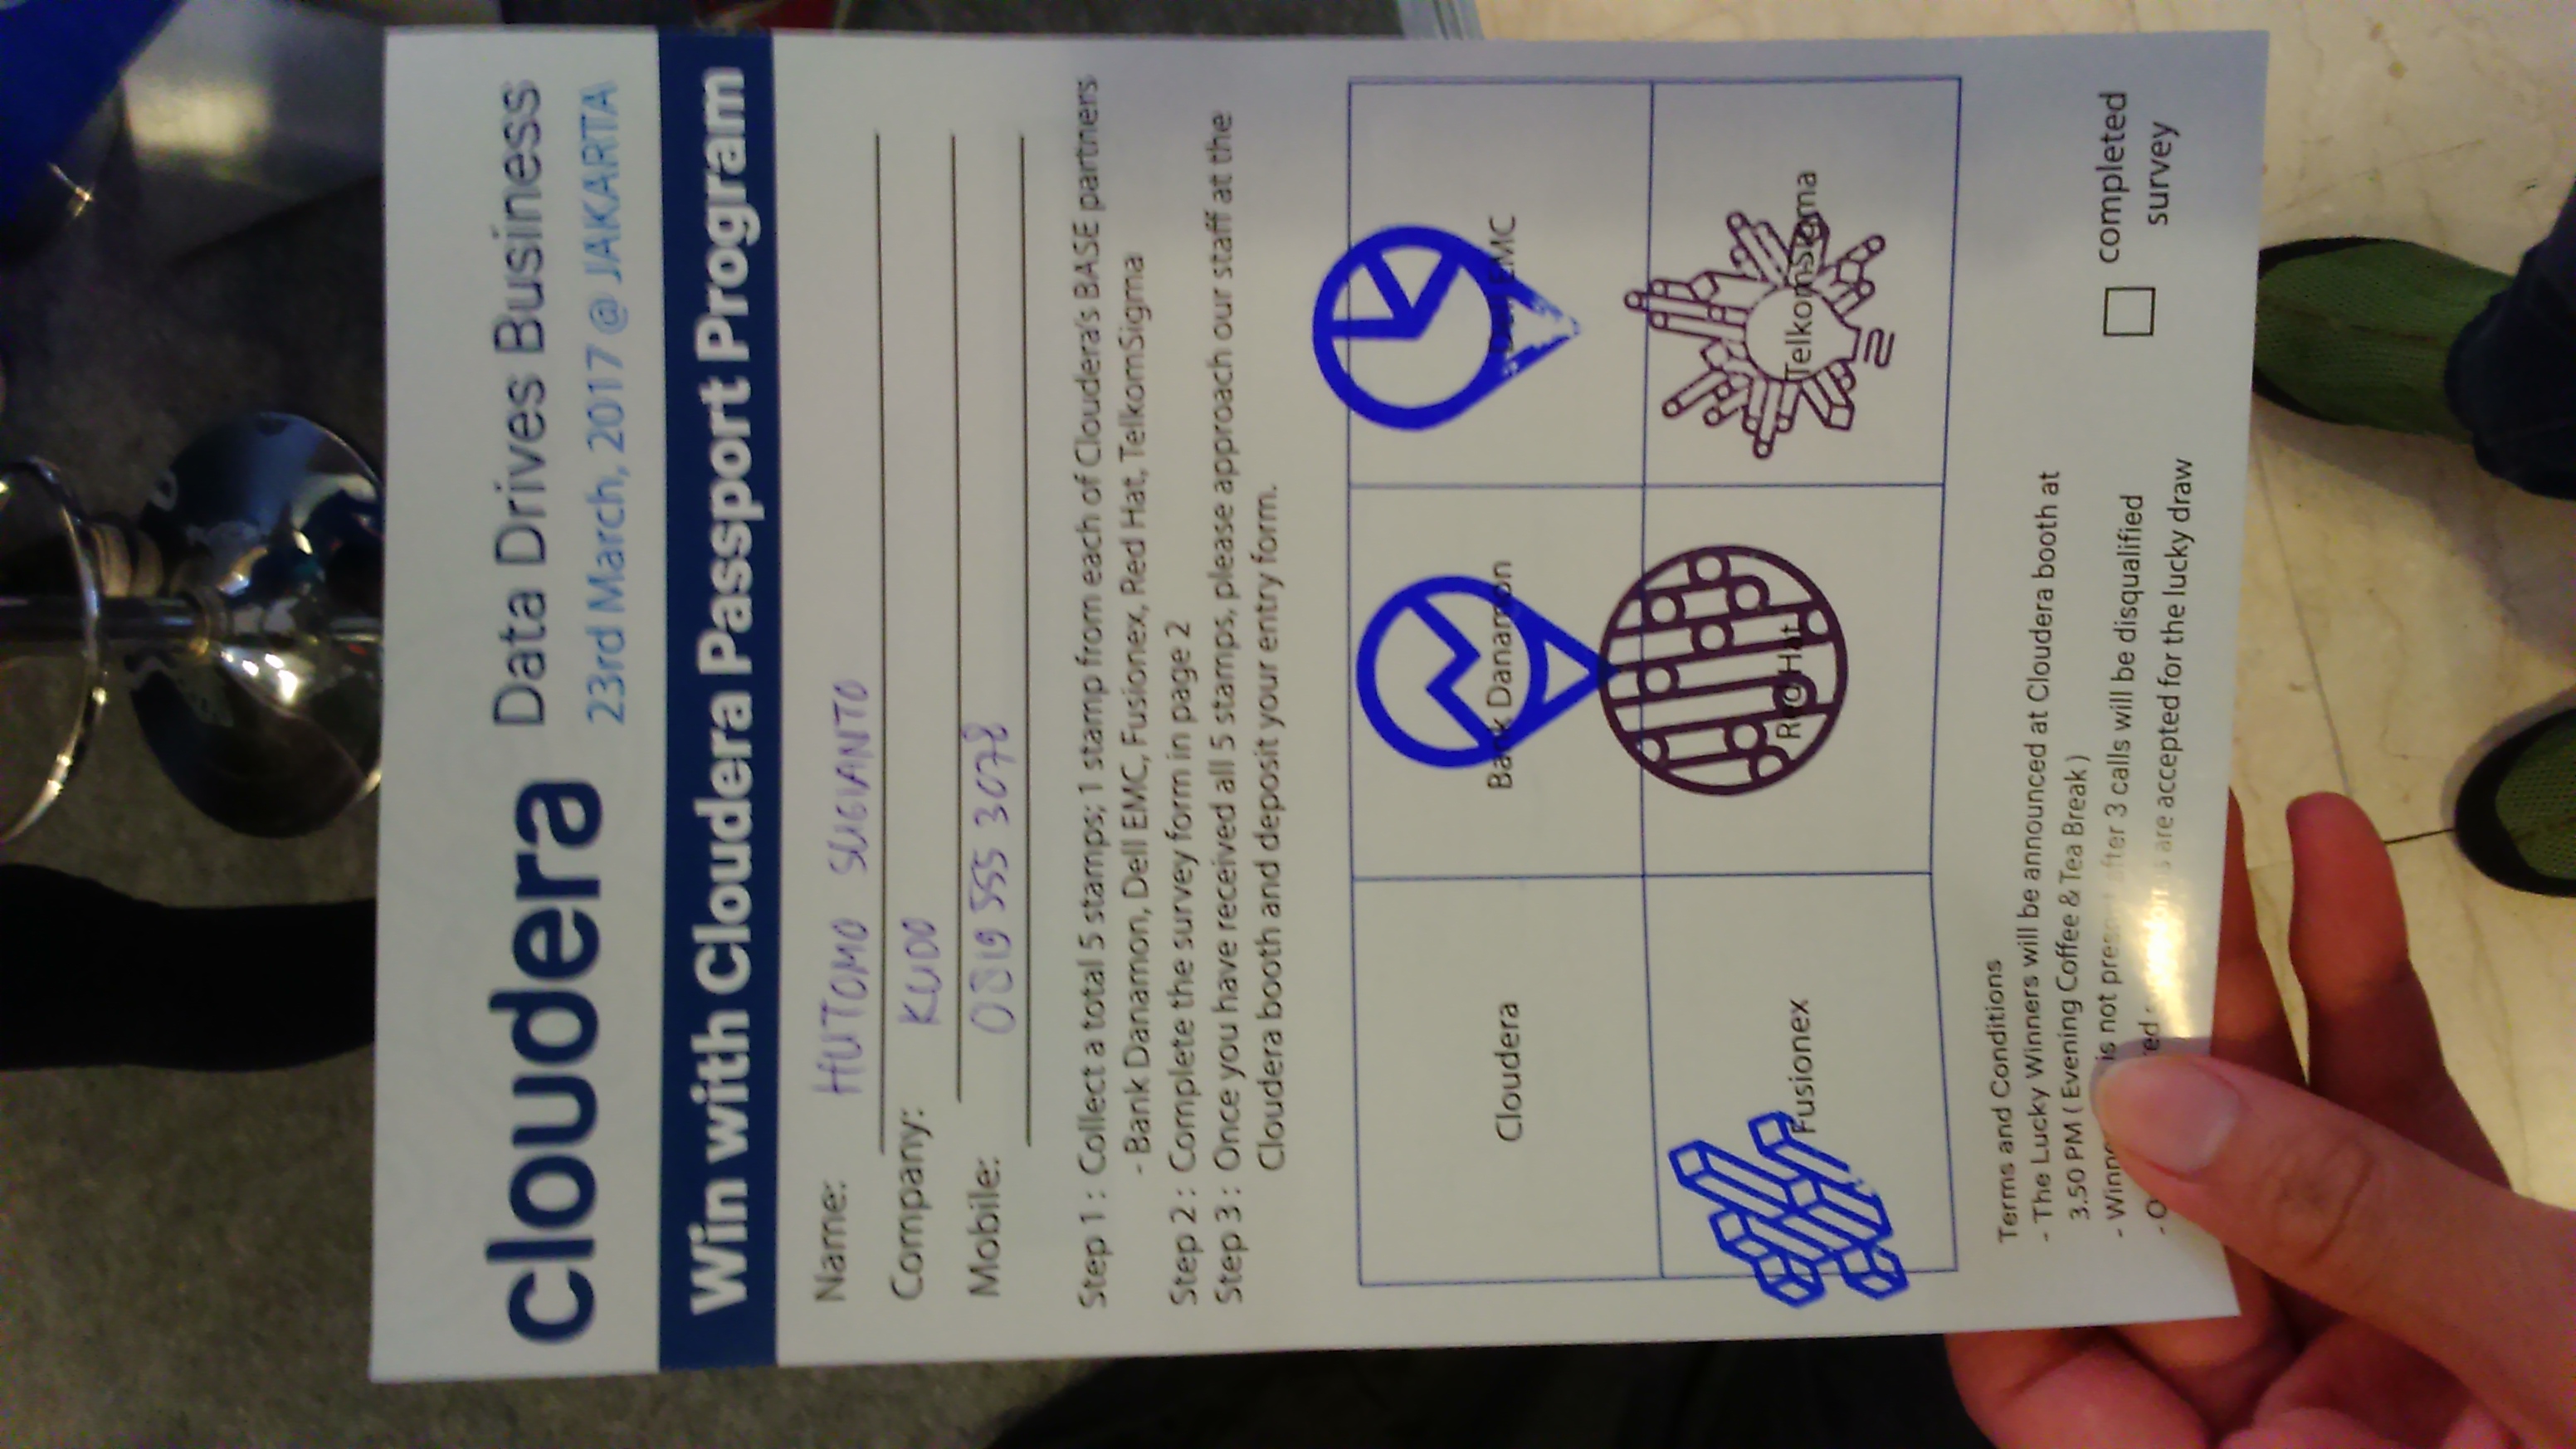 cloudera
Data Drives Business
23rd March, 2017 @ JAKARTA
Win with Cloudera Passport Program
Name: HUTOMO SUGIANTO
Company: KUDO
Mobile: 0819 555 3078
Step 1 : Collect a total 5 stamps; 1 stamp from each of Cloudera's BASE partners
- Bank Danamon, Dell EMC, Fusionex, Red Hat, TelkomSigma
Step 2 : Complete the survey form in page 2
Step 3 : Once you have received all 5 stamps, please approach our staff at the
Cloudera booth and deposit your entry form.
Cloudera
Bank Danamon
Dell EMC
Fusionex
Red Hat
TelkomSigma
Terms and Conditions
- The Lucky Winners will be announced at Cloudera booth at
3.50 PM ( Evening Coffee & Tea Break )
- is not present after 3 calls will be disqualified
- are accepted for the lucky draw
completed
survey